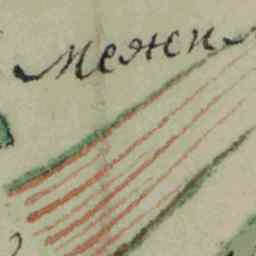 Межен